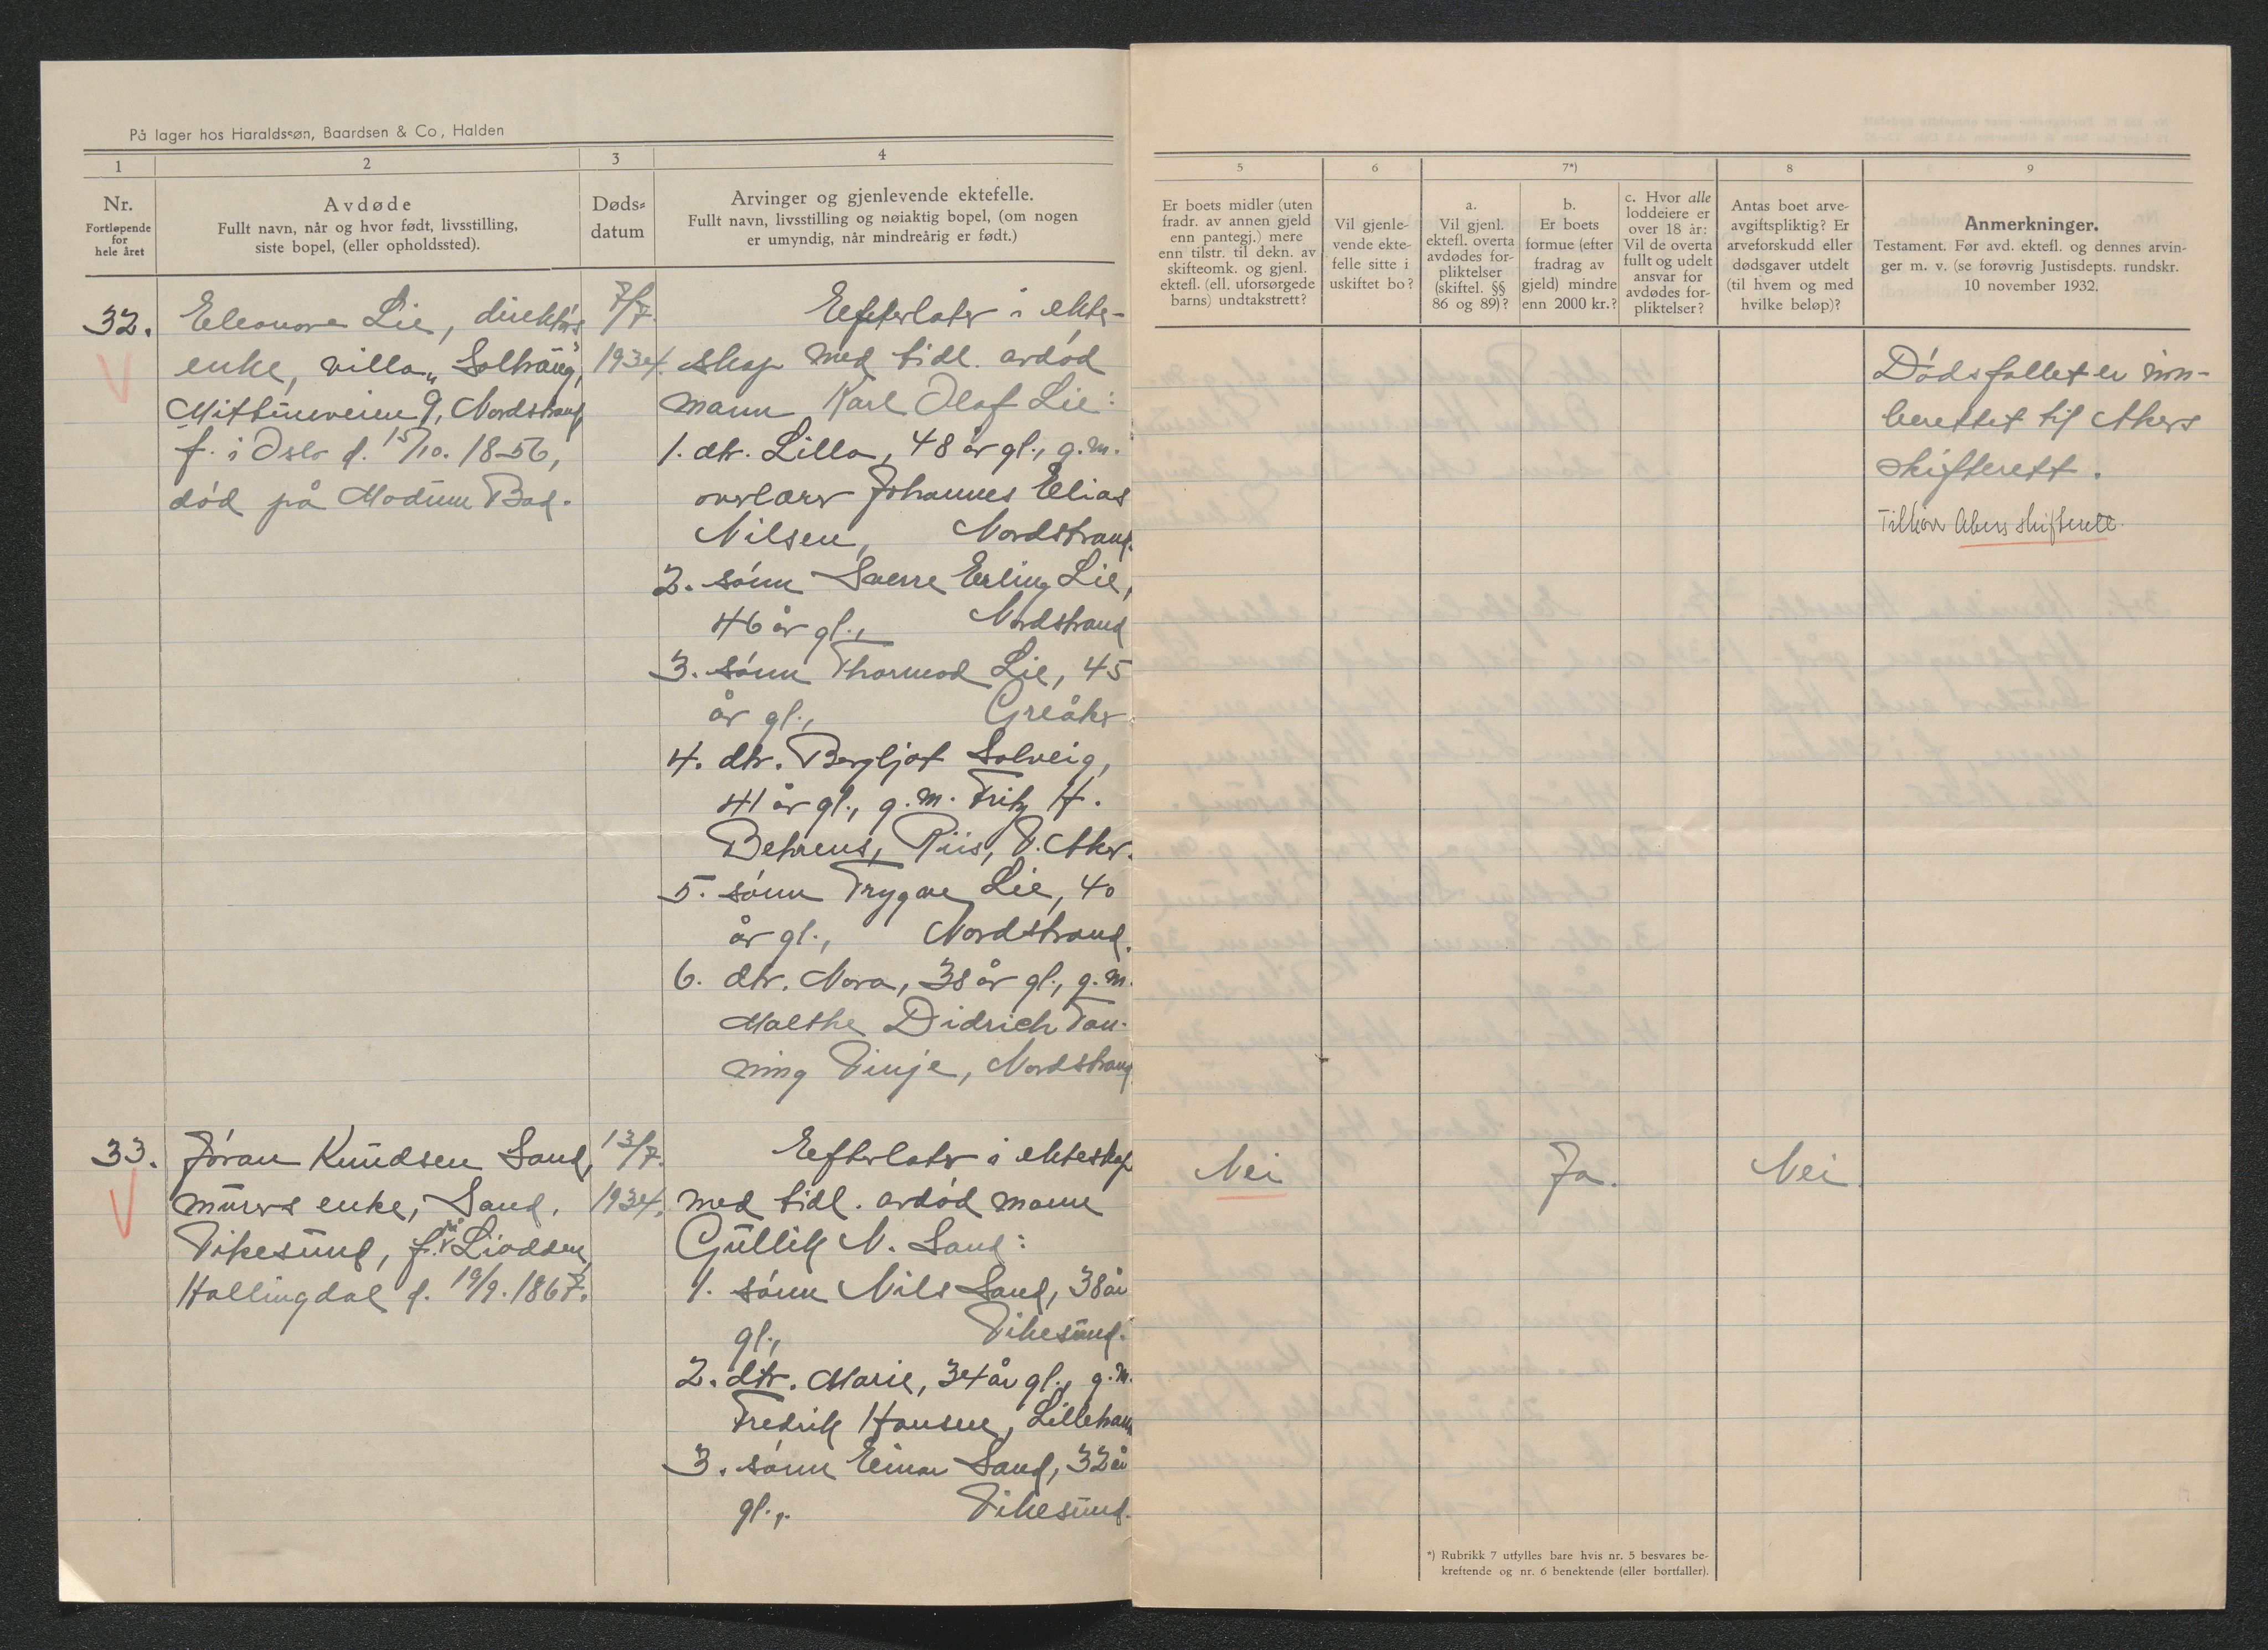 På lager hos Haraldssøn, Baardsen & Co, Halden
1
2
3
4
Nr.
Fortløpende
for
hele året
Avdøde
Fullt navn, når og hvor født, livsstilling,
siste bopel, (eller opholdssted).
Døds-
datum
Arvinger og gjenlevende ektefelle.
Fullt navn, livsstilling og nøiaktig bopel, (om nogen
er umyndig, når mindreårig er født.)
5
6
7*)
8
9
Er boets midler (uten
fradr. av annen gjeld
enn pantegj.) mere
enn tilstr. til dekn. av
skifteomk. og gjenl.
ektefl. (ell. uforsørgede
barns) undtakstrett?
Vil gjenle-
vende ekte-
felle sitte i
uskiftet bo?
a.
Vil gjenl.
ektefl. overta
avdødes for-
pliktelser
(skiftel. §§
86 og 89)?
b.
Er boets
formue (efter
fradrag av
gjeld) mindre
enn 2000 kr.?
c. Hvor alle
loddeiere er
over 18 år:
Vil de overta
fullt og udelt
ansvar for
avdødes for-
pliktelser?
Antas boet arve-
avgiftspliktig? Er
arveforskudd eller
dødsgaver utdelt
(til hvem og med
hvilke beløp)?
Anmerkninger.
Testament. Før avd. ektefl. og dennes arvin-
ger m. v. (se forøvrig Justisdepts. rundskr.
10 november 1932.
32.
Eleonore Lie, direktørs
enke, villa „Solhaug",
Mittunveien 9, Nordstrand
f. i Oslo d. 15/10. 1856,
død på Modum Bad.
7/7.
1934.
Efterlater i ekte-
skap med tidl. avdød
mann Karl Olaf Lie:
1. dtr. Lilla, 48 år gl., g.m.
overlærer Johannes Elias
Nilsen, Nordstrand.
2. sønn Sverre Erling Lie,
46 år gl., Nordstrand
3. sønn Thormod Lie, 45
år gl., Greåker
4. dtr. Bergljot Solveig,
41 år gl., g.m. Fritz H.
Behrens, Riis, V. Aker.
5. sønn Trygve Lie, 40
år gl., Nordstrand.
6. dtr. Nora, 38 år gl., g.m.
Malthe Didrich Tan-
ning Vinje, Nordstrand
Dødsfallet er inn-
berettet til Akers
skifterett.
Tilhører Akers skifterett.
33.
Jøran Knudsen Sand,
murers enke, Sand,
Vikesund, f. på Liodden
Hallingdal d. 19/9. 1867.
13/7.
1934.
Efterlater i ekteskap
med tidl. avdød mann
Gullik N. Sand:
1. sønn Nils Sand, 38 år
gl., Vikesund.
2. dtr. Marie, 34 år gl., g.m.
Fredrik Hansen,
3. sønn Einar Sand, 32 år
gl., Vikesund.
Nei
Ja.
Nei
*) Rubrikk 7 utfylles bare hvis nr. 5 besvares be-
kreftende og nr. 6 benektende (eller bortfaller).